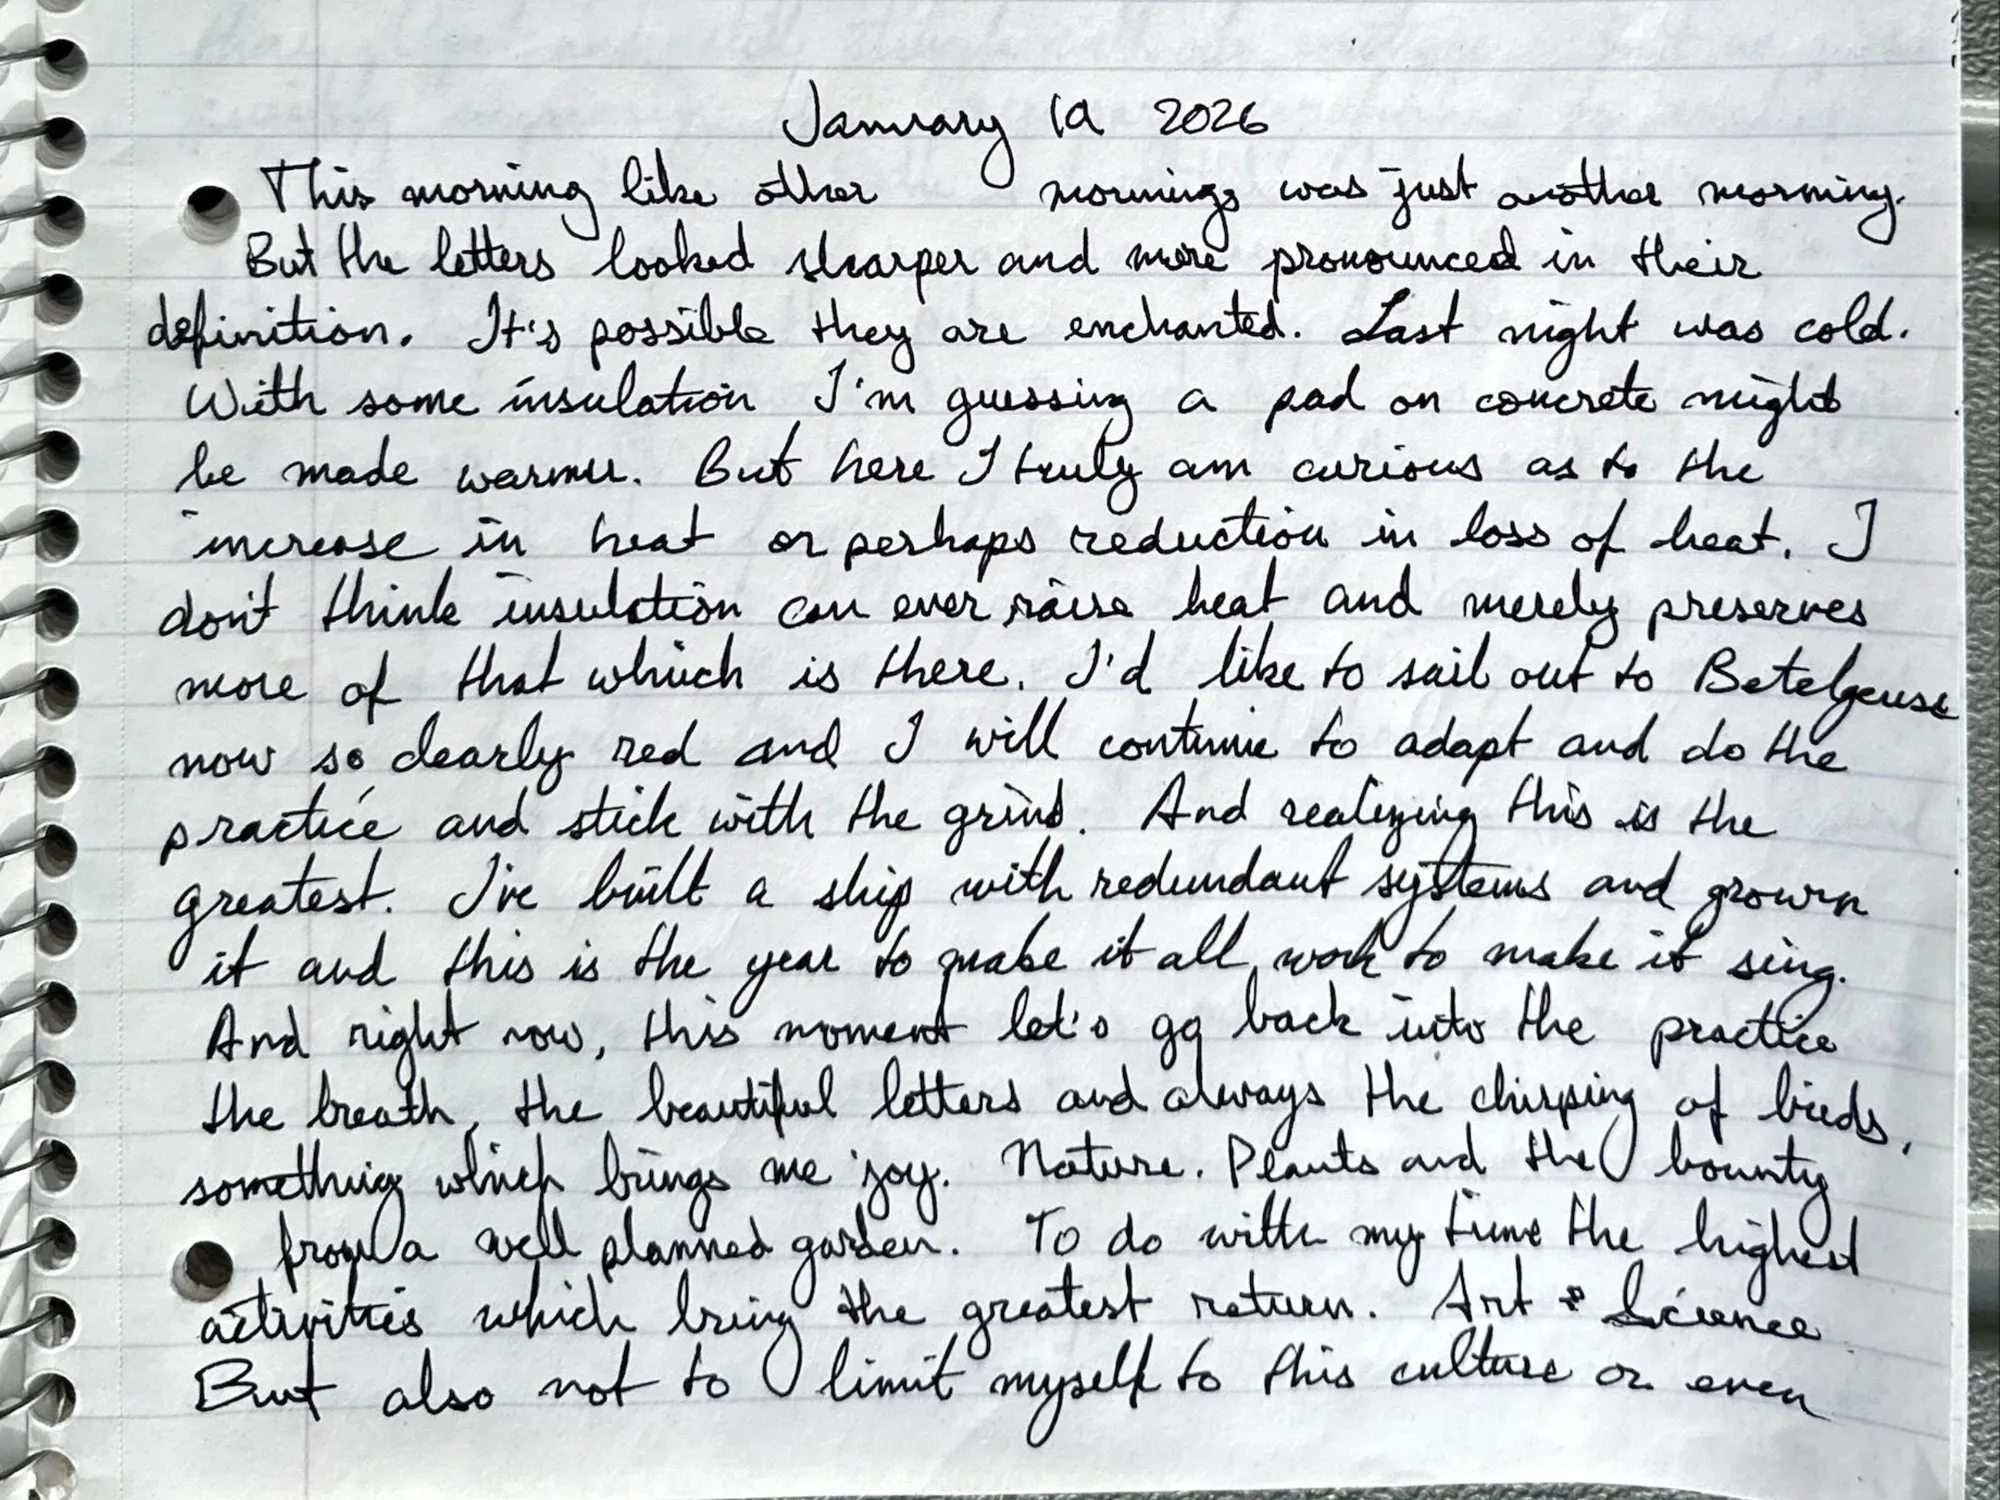 January 19 2026
This morning like other mornings was just another morning.
But the letters looked sharper and more pronounced in their
definition. It's possible they are enchanted. Last night was cold.
With some insulation I'm guessing a pad on concrete might
be made warmer. But here I truly am curious as to the
increase in heat or perhaps reduction in loss of heat. I
don't think insulation can ever raise heat and merely preserves
more of that which is there. I'd like to sail out to Betelgeuse
now so clearly red and I will continue to adapt and do the
practice and stick with the grind. And realizing this is the
greatest. I've built a ship with redundant systems and grown
it and this is the year to make it all work to make it sing.
And right now, this moment let's go back into the practice
the breath, the beautiful letters and always the chirping of birds,
something which brings me joy. Nature. Plants and the bounty
from a well planned garden. To do with my time the highest
activities which bring the greatest return. Art & Science
But also not to limit myself to this culture or even